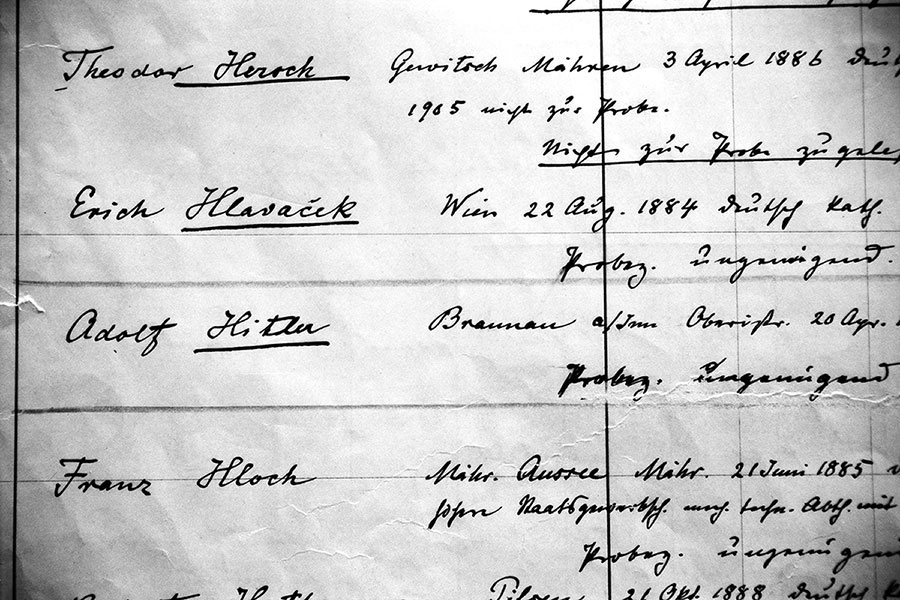 Theodor Herock Gewitsch Mähren 3 April 1886
1905 nicht zur Probe.
Nicht zur Probe
Erich Hlavaček Wien 22 Aug. 1884 deutsch kath.
Probez. ungenügend.
Adolf Hitler Braunau a/Inn Oberöstr. 20 Apr.
Probez. ungenügend
Franz Hloch Mähr. Aussee Mähr. 21 Juni 1885
Staatsgewerbsch. mech. techn. Abth. mit
Probez. ungenügend
Pilsen 21 Okt. 1888 deutsch